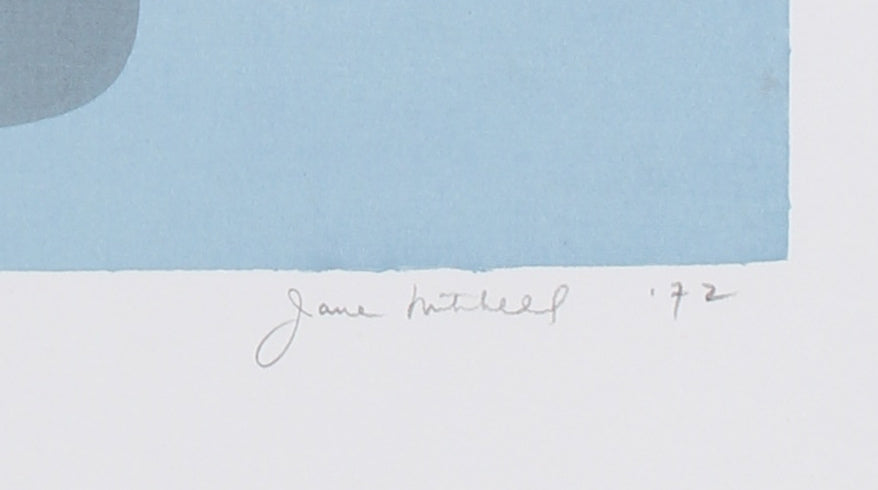 Jane Mitchell '72